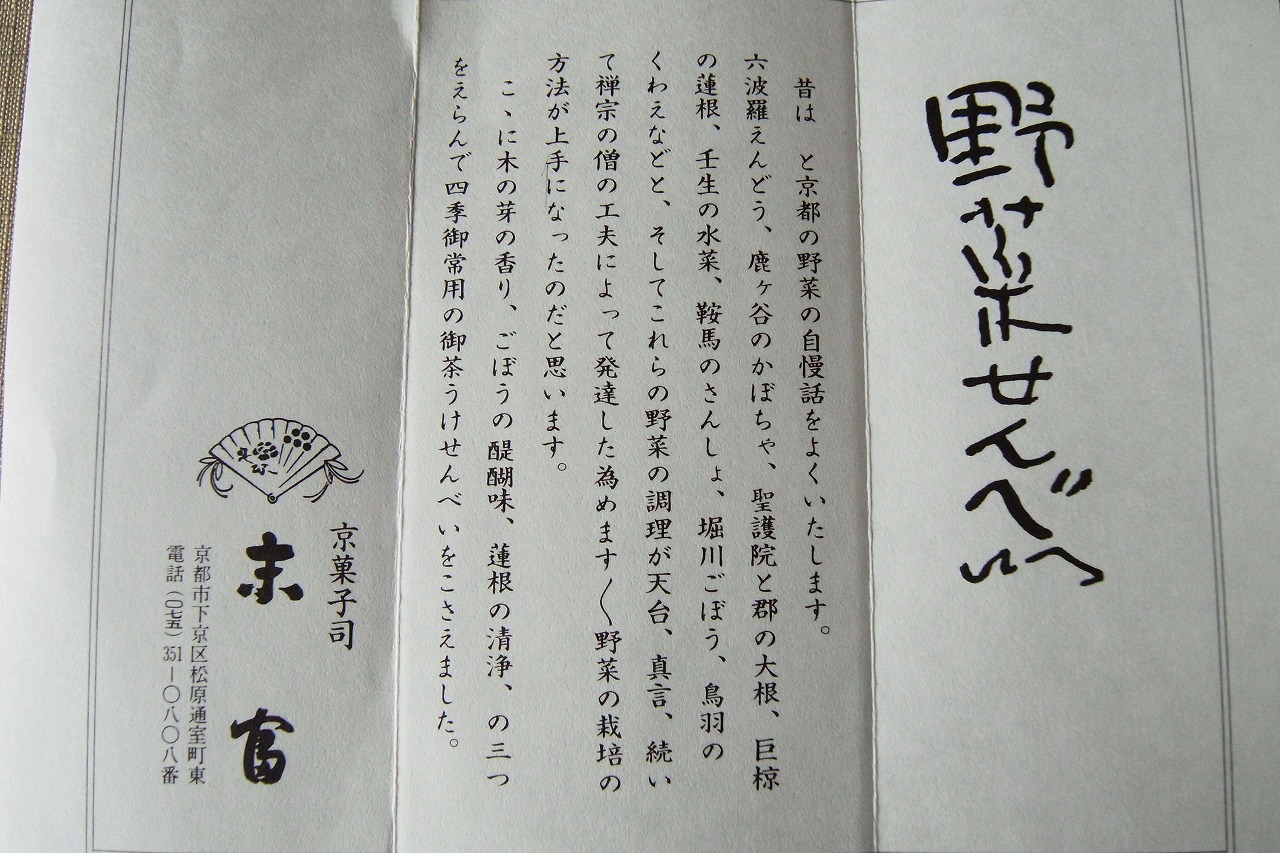 野菜せんべい
昔は　と京都の野菜の自慢話をよくいたします。
六波羅えんどう、鹿ヶ谷のかぼちゃ、聖護院と郡の大根、巨椋
の蓮根、壬生の水菜、鞍馬のさんしょ、堀川ごぼう、鳥羽の
くわえなどと、そしてこれらの野菜の調理が天台、真言、続い
て禅宗の僧の工夫によって発達した為めます〱野菜の栽培の
方法が上手になったのだと思います。
こゝに木の芽の香り、ごぼうの醍醐味、蓮根の清浄、の三つ
をえらんで四季御常用の御茶うけせんべいをこさえました。
京菓子司
末富
京都市下京区松原通室町東
電話（〇七五）351－〇八〇八番